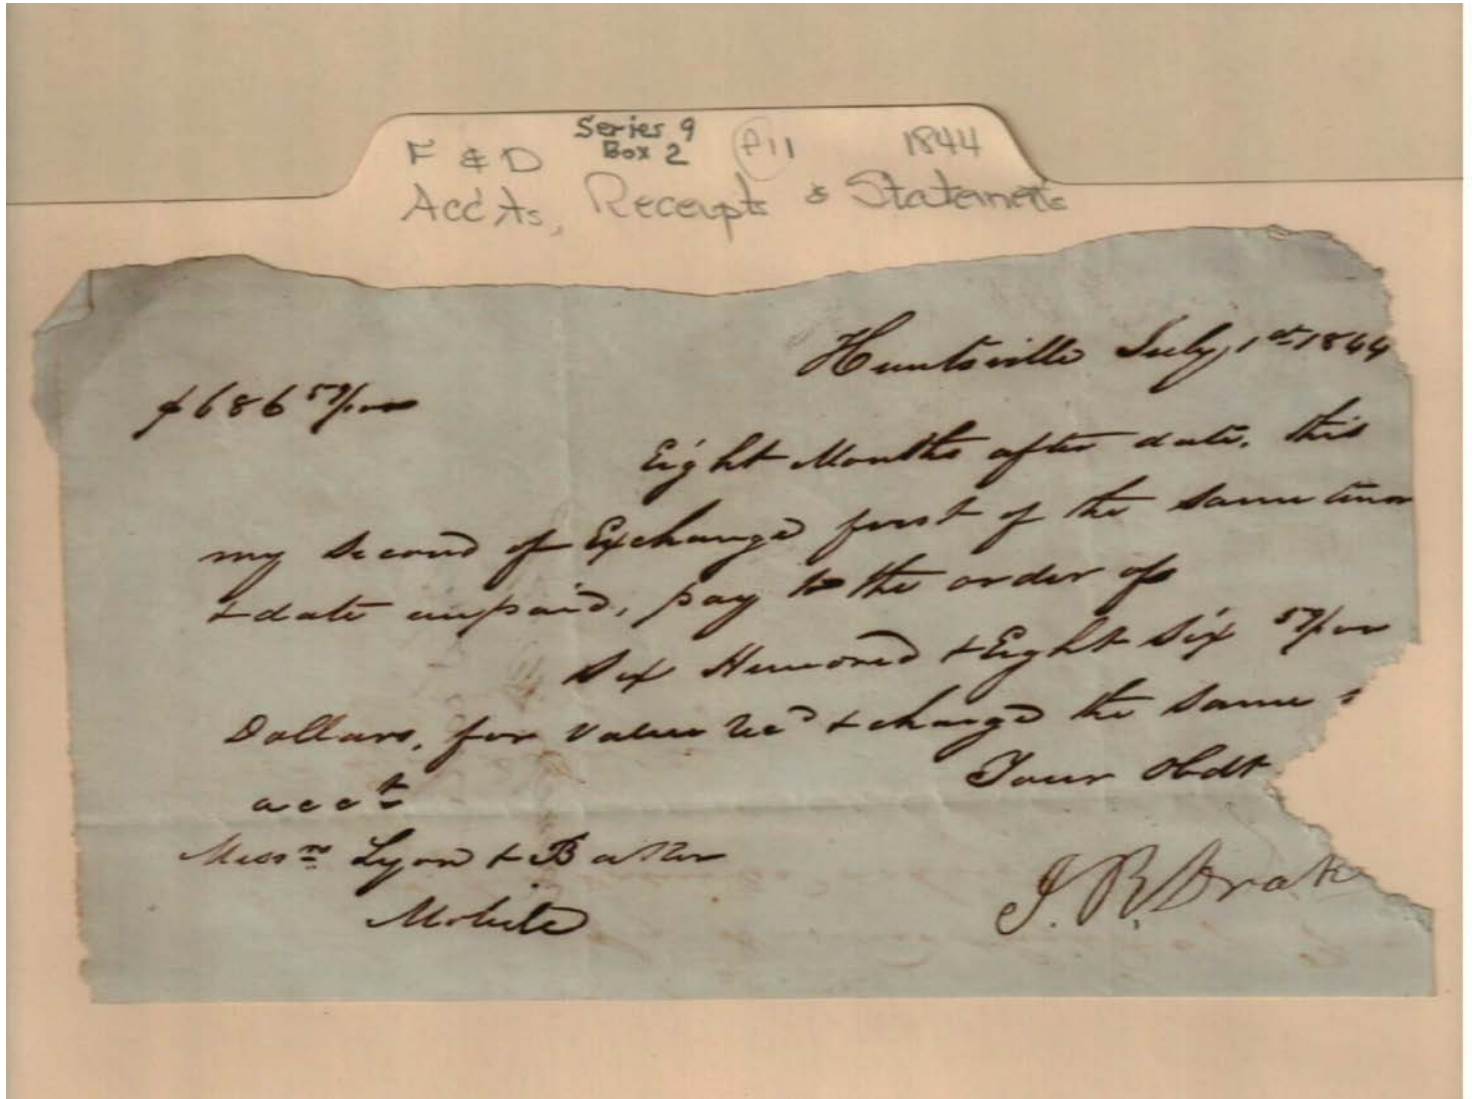 Series 9
F & D Box 2 F11 1844
Acc'ts, Receipts & Statements
Huntsville July 1st 1844
$686 59/100
Eight Months after date, this
my Second of Exchange first of the same tenor
& date unpaid, pay to the order of
Six Hundred & Eight Six 59/100
Dollars, for Value Recd & charge the same
acct Your Obdt
Messrs Lyon & Baker
Mobile J. R. Drake